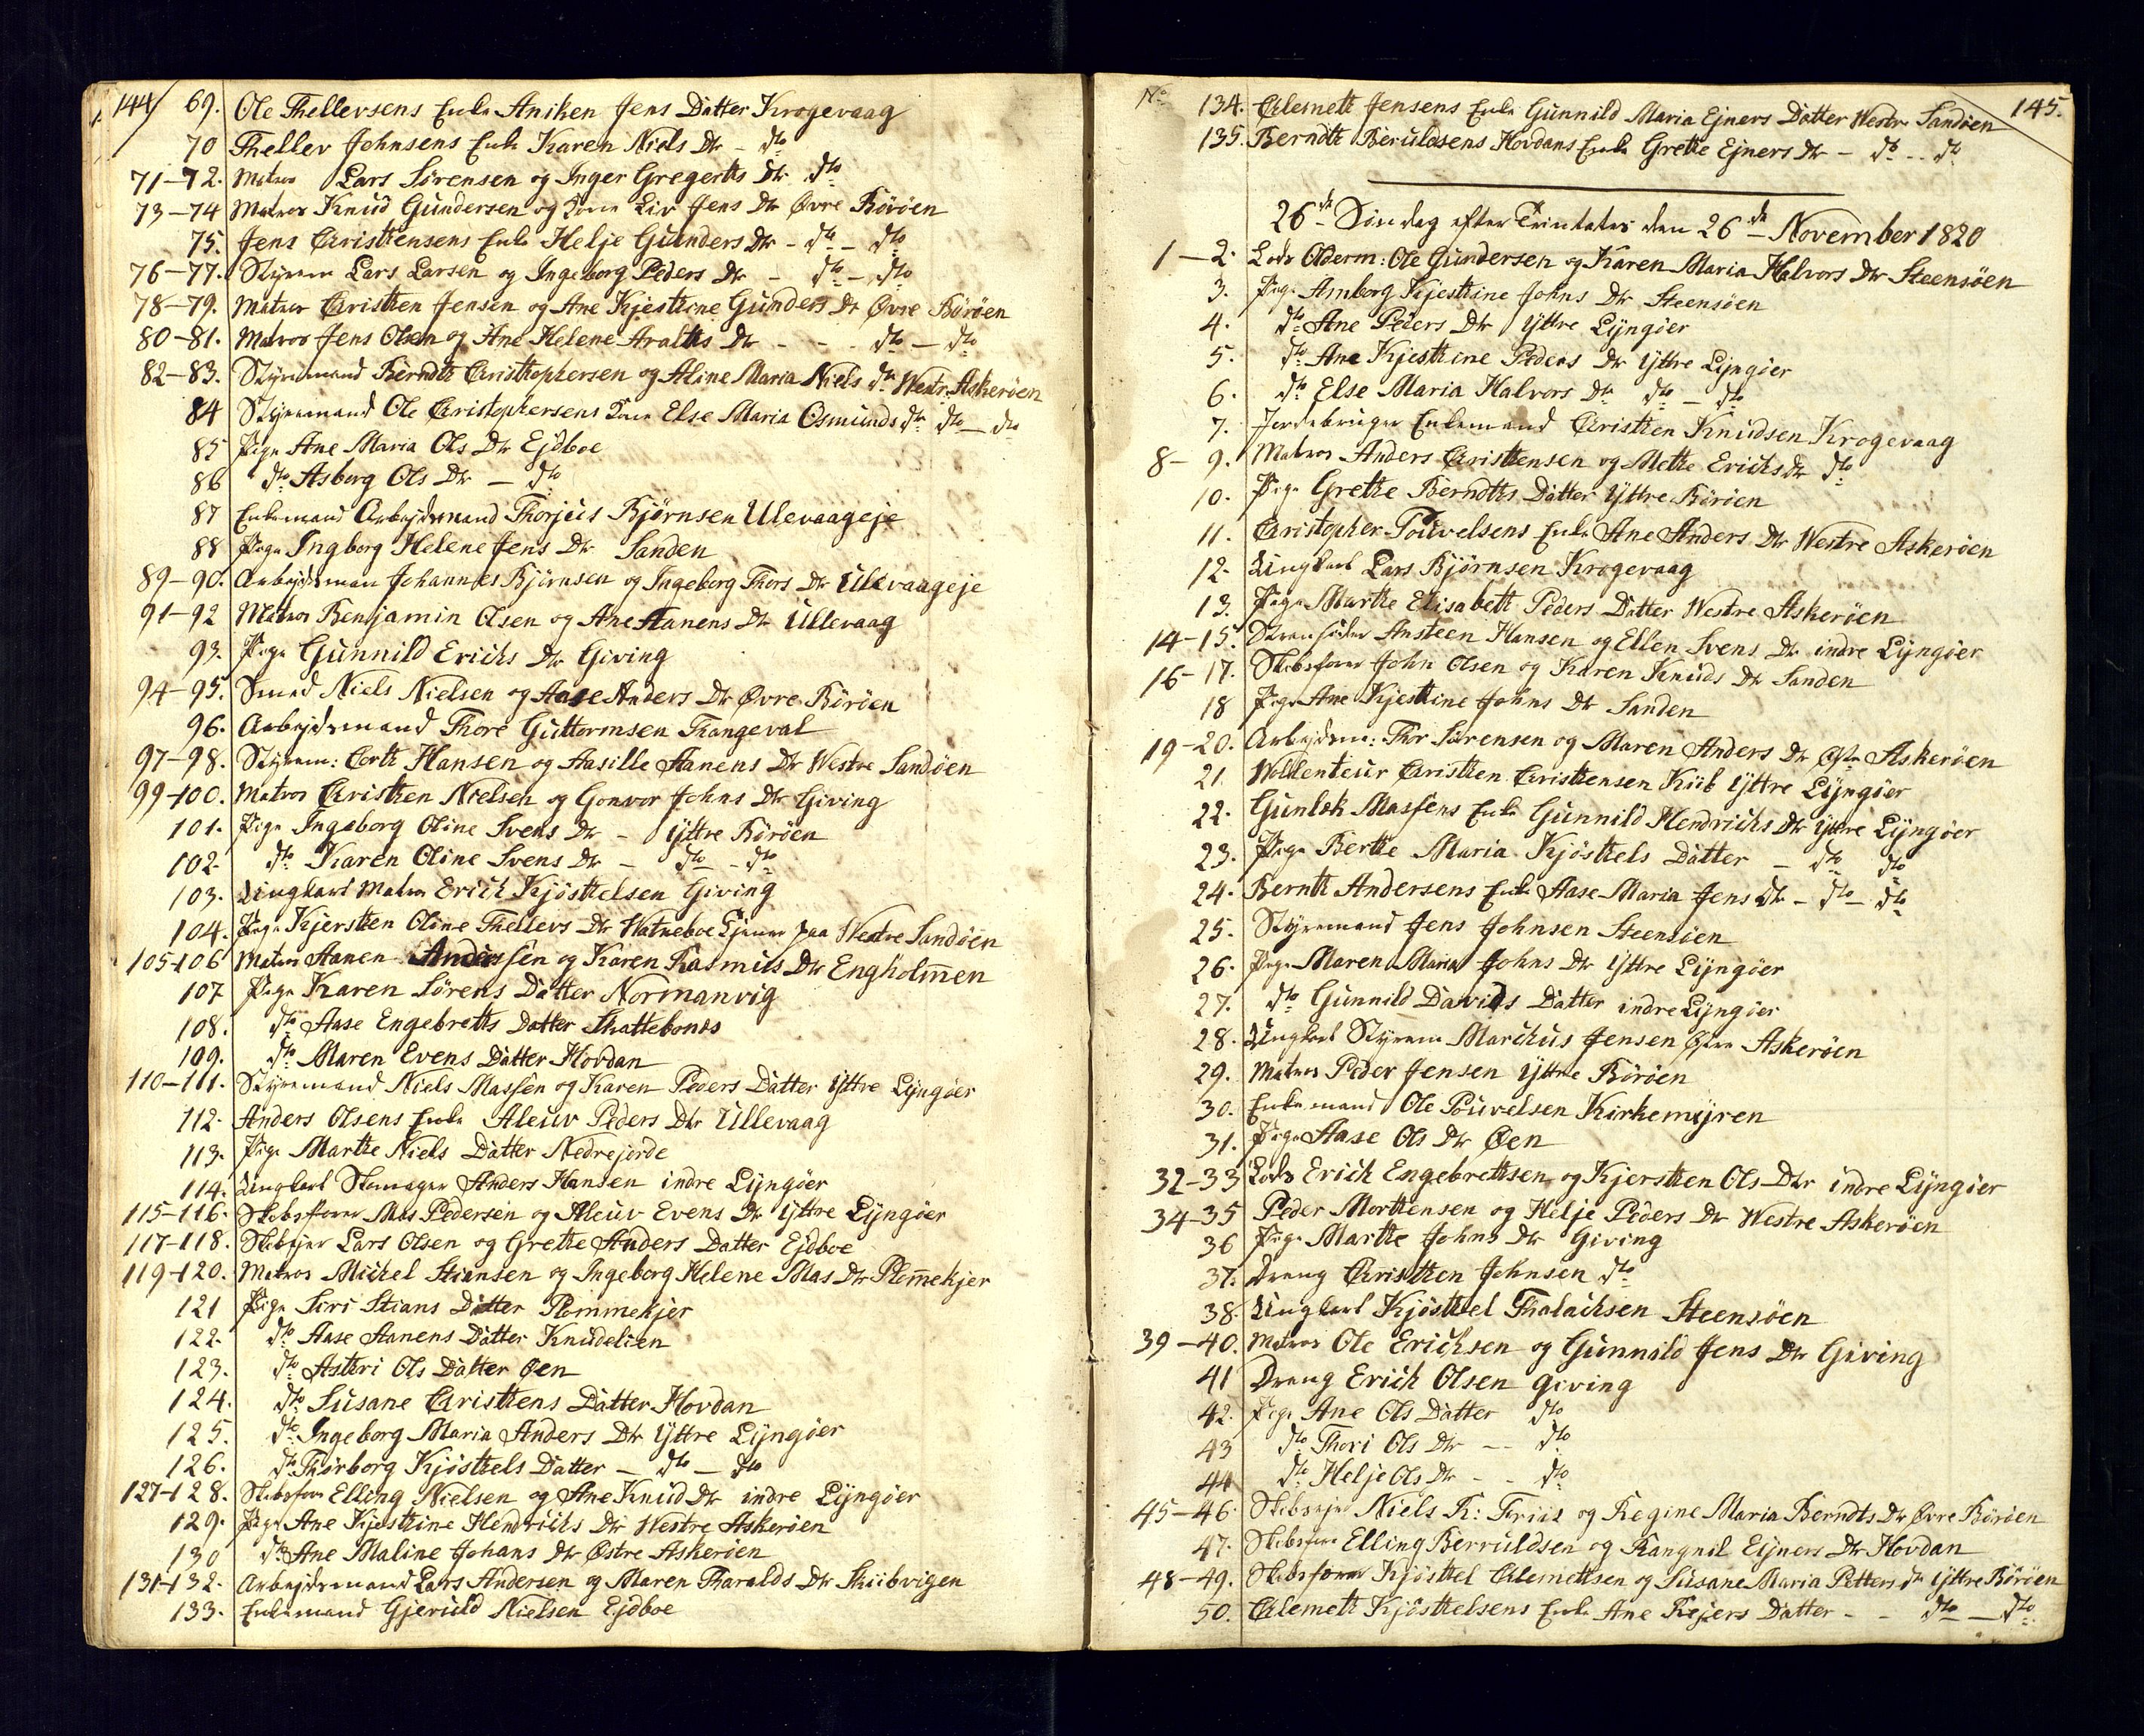 144
69. Ole Thellevsens Enke Aniken Jens Datter Krogevaag
70 Thellev Johnsens Enke Karen Niels Dtr - dto
71-72. Matros Lars Sørensen og Inger Gregerths Dtr dto
73-74 Matros Knud Gundersen og Kone Liv Jens Dtr Øvre Böröen
75. Jens Christensens Enke Helje Gunders Dtr - dto - dto
76-77. Styrem Lars Larsen og Ingeborg Peders Dtr - dto - dto
78-79. Matros Christen Jensen og Ane Kjestine Gunders Dr Øvre Böröen
80-81. Matros Jens Olsen og Ane Helene Aralths Dtr - - dto - dto
82-83. Styremand Berndth Christophersen og Aline Maria Niels dtr Westr. Askeröen
84 Styremand Ole Christophersens Kone Else Maria Osmunds dtr dto - dto
85 Pige Ane Maria Ols Dtr Ejdboe
86 dto Asborg Ols Dtr - dto
87 Enkemand Arbejdsmand Thorjus Bjørnsen Ulevaageje
88 Pige Ingborg Helene Jens Dtr Sanden
89-90. Arbejdsman Johannes Bjørnsen og Ingeborg Thors Dtr Ulevaageje
91-92 Matros Benjamin Olsen og Ane Aanens Dtr Ullevaag
93. Pige Gunnild Erichs Dtr Giving
94-95. Smed Niels Nielsen og Aase Anders Dtr Øvre Böröen
96. Arbejdsmand Thore Guttormsen Thangeval
97-98. Styrem: Corth Hansen og Aasille Aanens Dtr Westre Sandöen
99-100. Matros Christen Nielsen og Gonvor Johns Dtr Giving
101. Pige Ingeborg Oline Svens Dtr - Yttre Böröen
102. dto Karen Oline Svens Dtr - dto - dto
103. Ungkarl Matros Erich Kjösthelsen Giving
104. Pige Kjersten Oline Thellevs Dtr Watneboe tjener paa Westre Sandöen
105-106 Matros Aanen Andersen og Karen Rasmus Dtr Engholmen
107 Pige Karen Sörens Datter Normanvig
108. dto Aase Engebretts Datter Skattebonds
109. dto Maren Evens Datter Hovdan
110-111. Styremand Niels Massen og Karen Peders Datter Yttre Lyngöer
112. Anders Olsens Enke Aleuv Peders Dtr Ullevaag
113. Pige Marthe Niels Datter Nedrejorde
114. Ungkarl Skomager Anders Hansen indre Lyngöer
115-116. Skibsfører Mas Pedersen og Aleuv Evens Dr Yttre Lyngöer
117-118. Skibsejer Lars Olsen og Grethe Anders Datter Ejdboe
119-120. Matros Michel Stiansen og Ingeborg Helene Mas Dtr Plommekjer
121 Pige Siri Stians Datter Plommekjer
122. dto Aase Aanens Datter Knudelien
123. dto Asthri Ols Datter Öen
124. dto Susane Christens Datter Hovdan
125. dto Ingeborg Maria Anders Dtr Yttre Lyngöer
126. dto Thorborg Kjösthels Datter - dto - dto
127-128. Skibsfører Elling Nielsen og Ane Knud Dtr indre Lyngöer
129. Pige Ane Kjestine Hendrichs Dtr Westre Askeröen
130 dto Ane Maline Johans Dtr Østre Askeröen
131-132. Arbejdsmand Lars Andersen og Maren Tharalds Dtr Skiibvigen
133. Enkemand Gjeruld Nielsen Ejdboe
No 145.
134. Clemeth Jensens Enke Gunnild Maria Ejners Datter Westre Sandöen
135. Berndth Beruldsens Hovdans Enke Grethe Ejners Dtr - dto - dto
26de Søndag efter Trinitates den 26de November 1820
1-2. Lods Olderm: Ole Gundersen og Karen Maria Halvors Dtr Steensöen
3. Pige Amborg Kjestine Johns Dtr Steensöen
4. dto Ane Peders Dtr Yttre Lyngöer
5. dto Ane Kjestine Peders Dr Yttre Lyngöer
6. dto Else Maria Halvors Dtr dto - dto
7. Jordebruger Enkemand Christen Knudsen Krogevaag
8-9. Matros Anders Christensen og Methe Erichs dtr dto
10. Pige Grethe Berndths Datter Yttre Böröen
11. Christopher Pouvelsens Enke Ane Anders Dtr Westre Askeröen
12. Ungkarl Lars Bjørnsen Krogevaag
13. Pige Marthe Elisabeth Peders Datter Westre Askeröen
14-15. Strandsidder Ansteen Hansen og Ellen Svens Dtr indre Lyngöer
16-17. Skibsfører John Olsen og Karen Knuds Dtr Sanden
18 Pige Ane Kjestine Johns Dtr Sanden
19-20. Arbejdsm: Thor Sörensen og Maren Anders Dr Østr Askeröen
21. Wollenteur Christen Christensen Kiib Yttre Lyngöer
22. Gunlek Massens Enke Gunnild Hendrichs Dtr Yttre Lyngöer
23. Pige Berthe Maria Kjösthels Datter - dto dto
24. Bernth Andersens Enke Aase Maria Jens Dtr - dto - dto
25. Styremand Jens Johnsen Steensöen
26. Pige Maren Maria Johns Dtr Yttre Lyngöer
27. dto Gunnild Davids Datter indre Lyngöer
28. Ungkarl Styrem Marchus Jensen Østre Askeröen
29. Matros Peder Jensen Yttre Böröen
30. Enkemand Ole Pouvelsen Kirkemyren
31. Pige Aase Ols Dtr Øen
32-33 Lods Erich Engebrethsen og Kjersthen Ols Dtr indre Lyngöer
34-35 Peder Morthensen og Helje Peders Dr Westre Askeröen
36 Pige Marthe Johns Dtr Giving
37. Dreng Christhen Johnsen dto
38. Ungkarl Kjösthel Thalachsen Steensöen
39-40. Matros Ole Erichsen og Gunnild Jens Dtr Giving
41 Dreng Erich Olsen Giving
42. Pige Ane Ols Datter dto
43 dto Thori Ols Dtr - - dto
44 dto Helje Ols Dtr - - dto
45-46. Skibsejer Niels R: Friis og Regine Maria Berndts Dr Øvre Böröen
47. Skibsfører Elling Berruldsen og Rangnil Ejners Dtr Hovdan
48-49. Skibsfører Kjösthel Clemethsen og Susane Maria Petters dtr Yttre Böröen
50. Clemeth Kjösthelsens Enke Ane Rejers Datter - - dto - dto